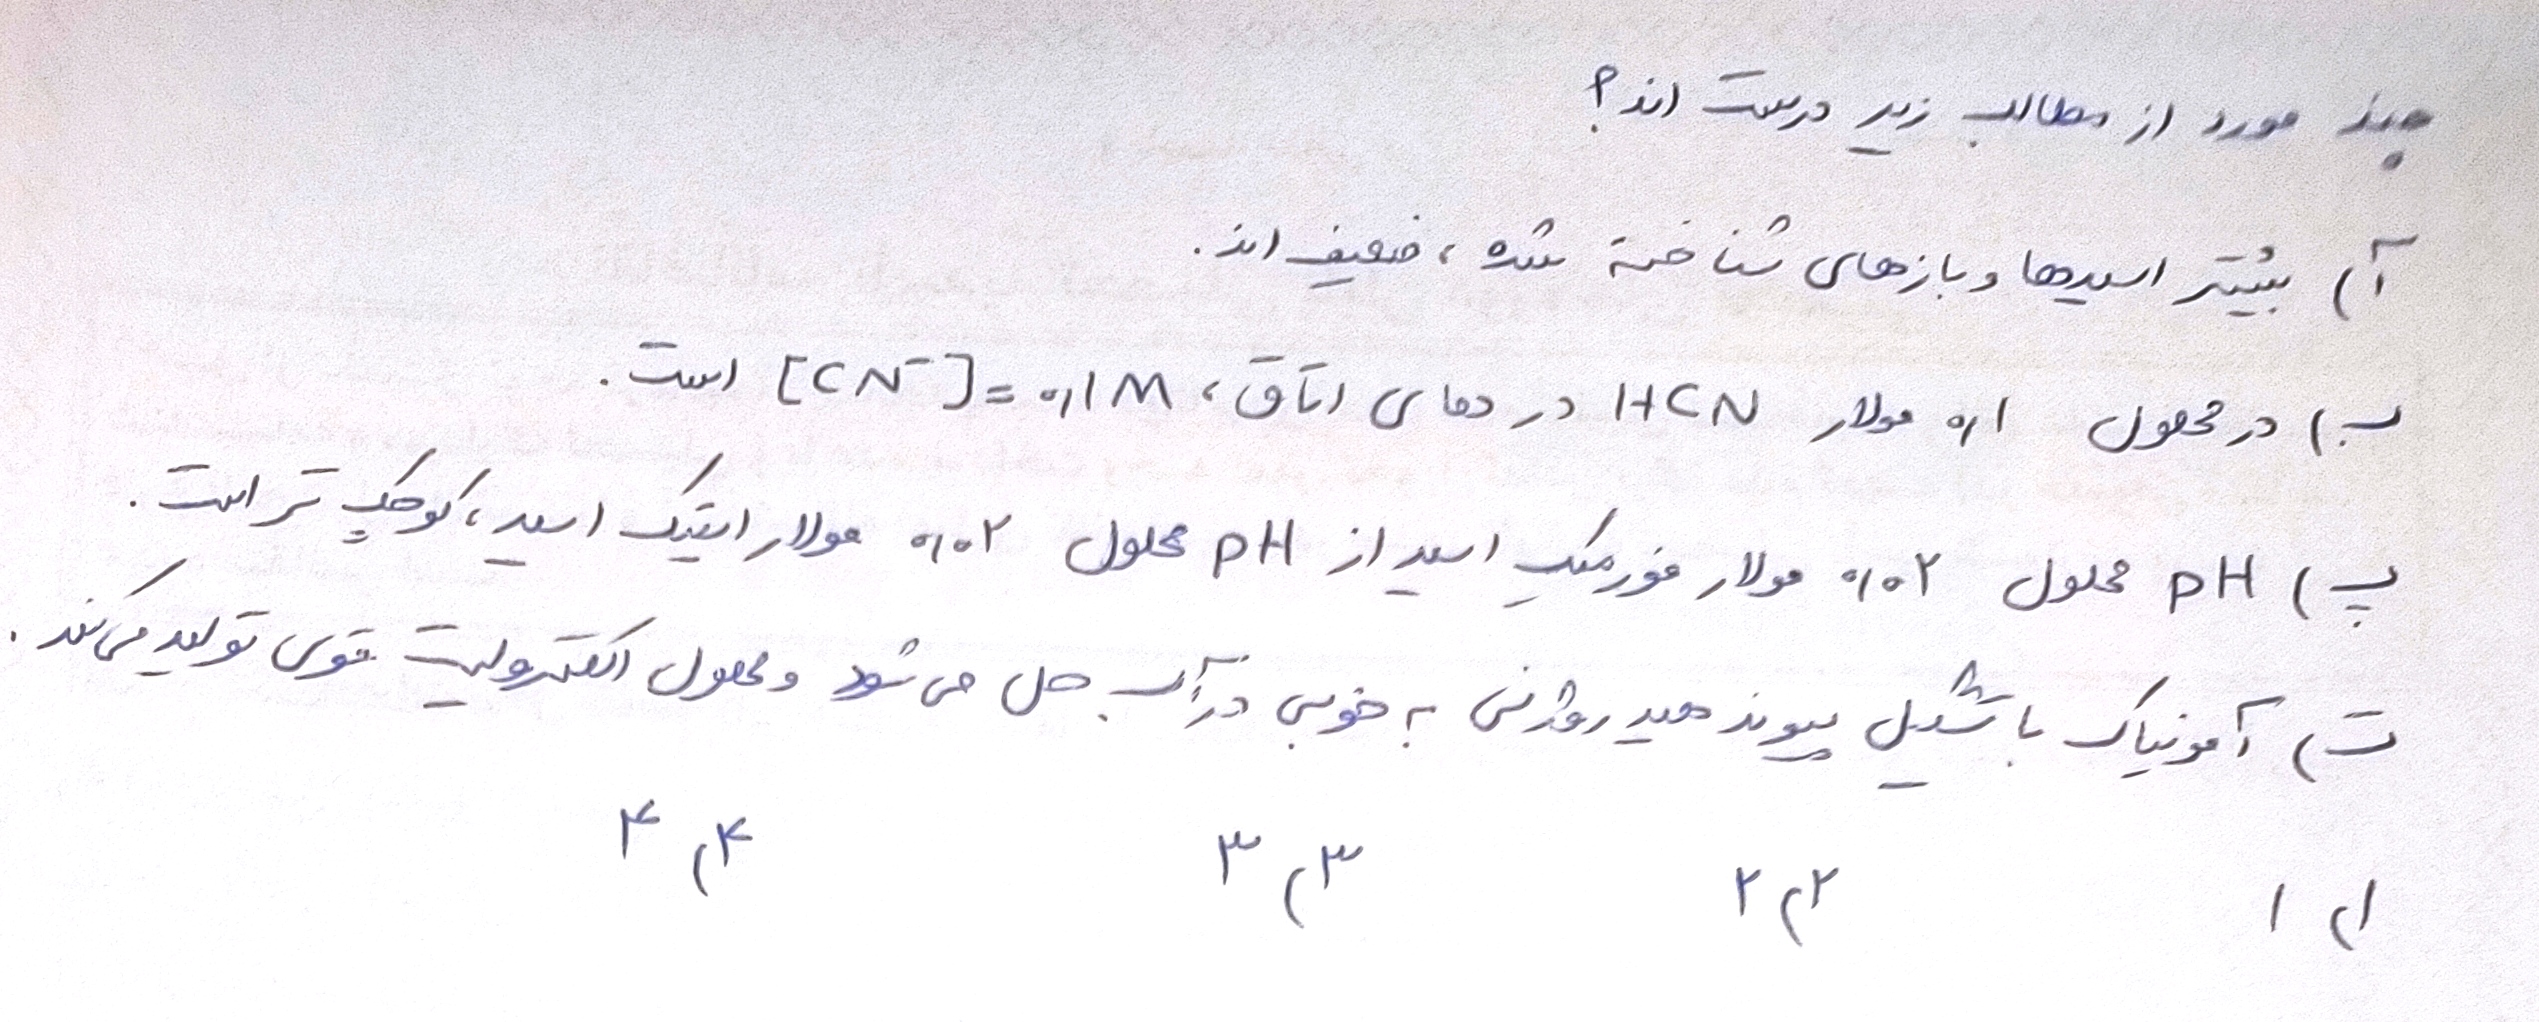 چند مورد از مطالب زیر درست اند؟
آ) بیشتر اسیدها و بازهای شناخته شده، ضعیف اند.
ب) در محلول ۰٫۱ مولار HCN در دمای اتاق، [CN⁻] = ۰٫۱ M است.
پ) pH محلول ۰٫۰۲ مولار فورمیک اسید از pH محلول ۰٫۰۲ مولار استیک اسید، کوچک تر است.
ت) آمونیاک با تشکیل پیوند هیدروژنی به خوبی در آب حل می شود و محلول الکترولیت قوی تولید می کند.
۱) ۱ ۲) ۲ ۳) ۳ ۴) ۴